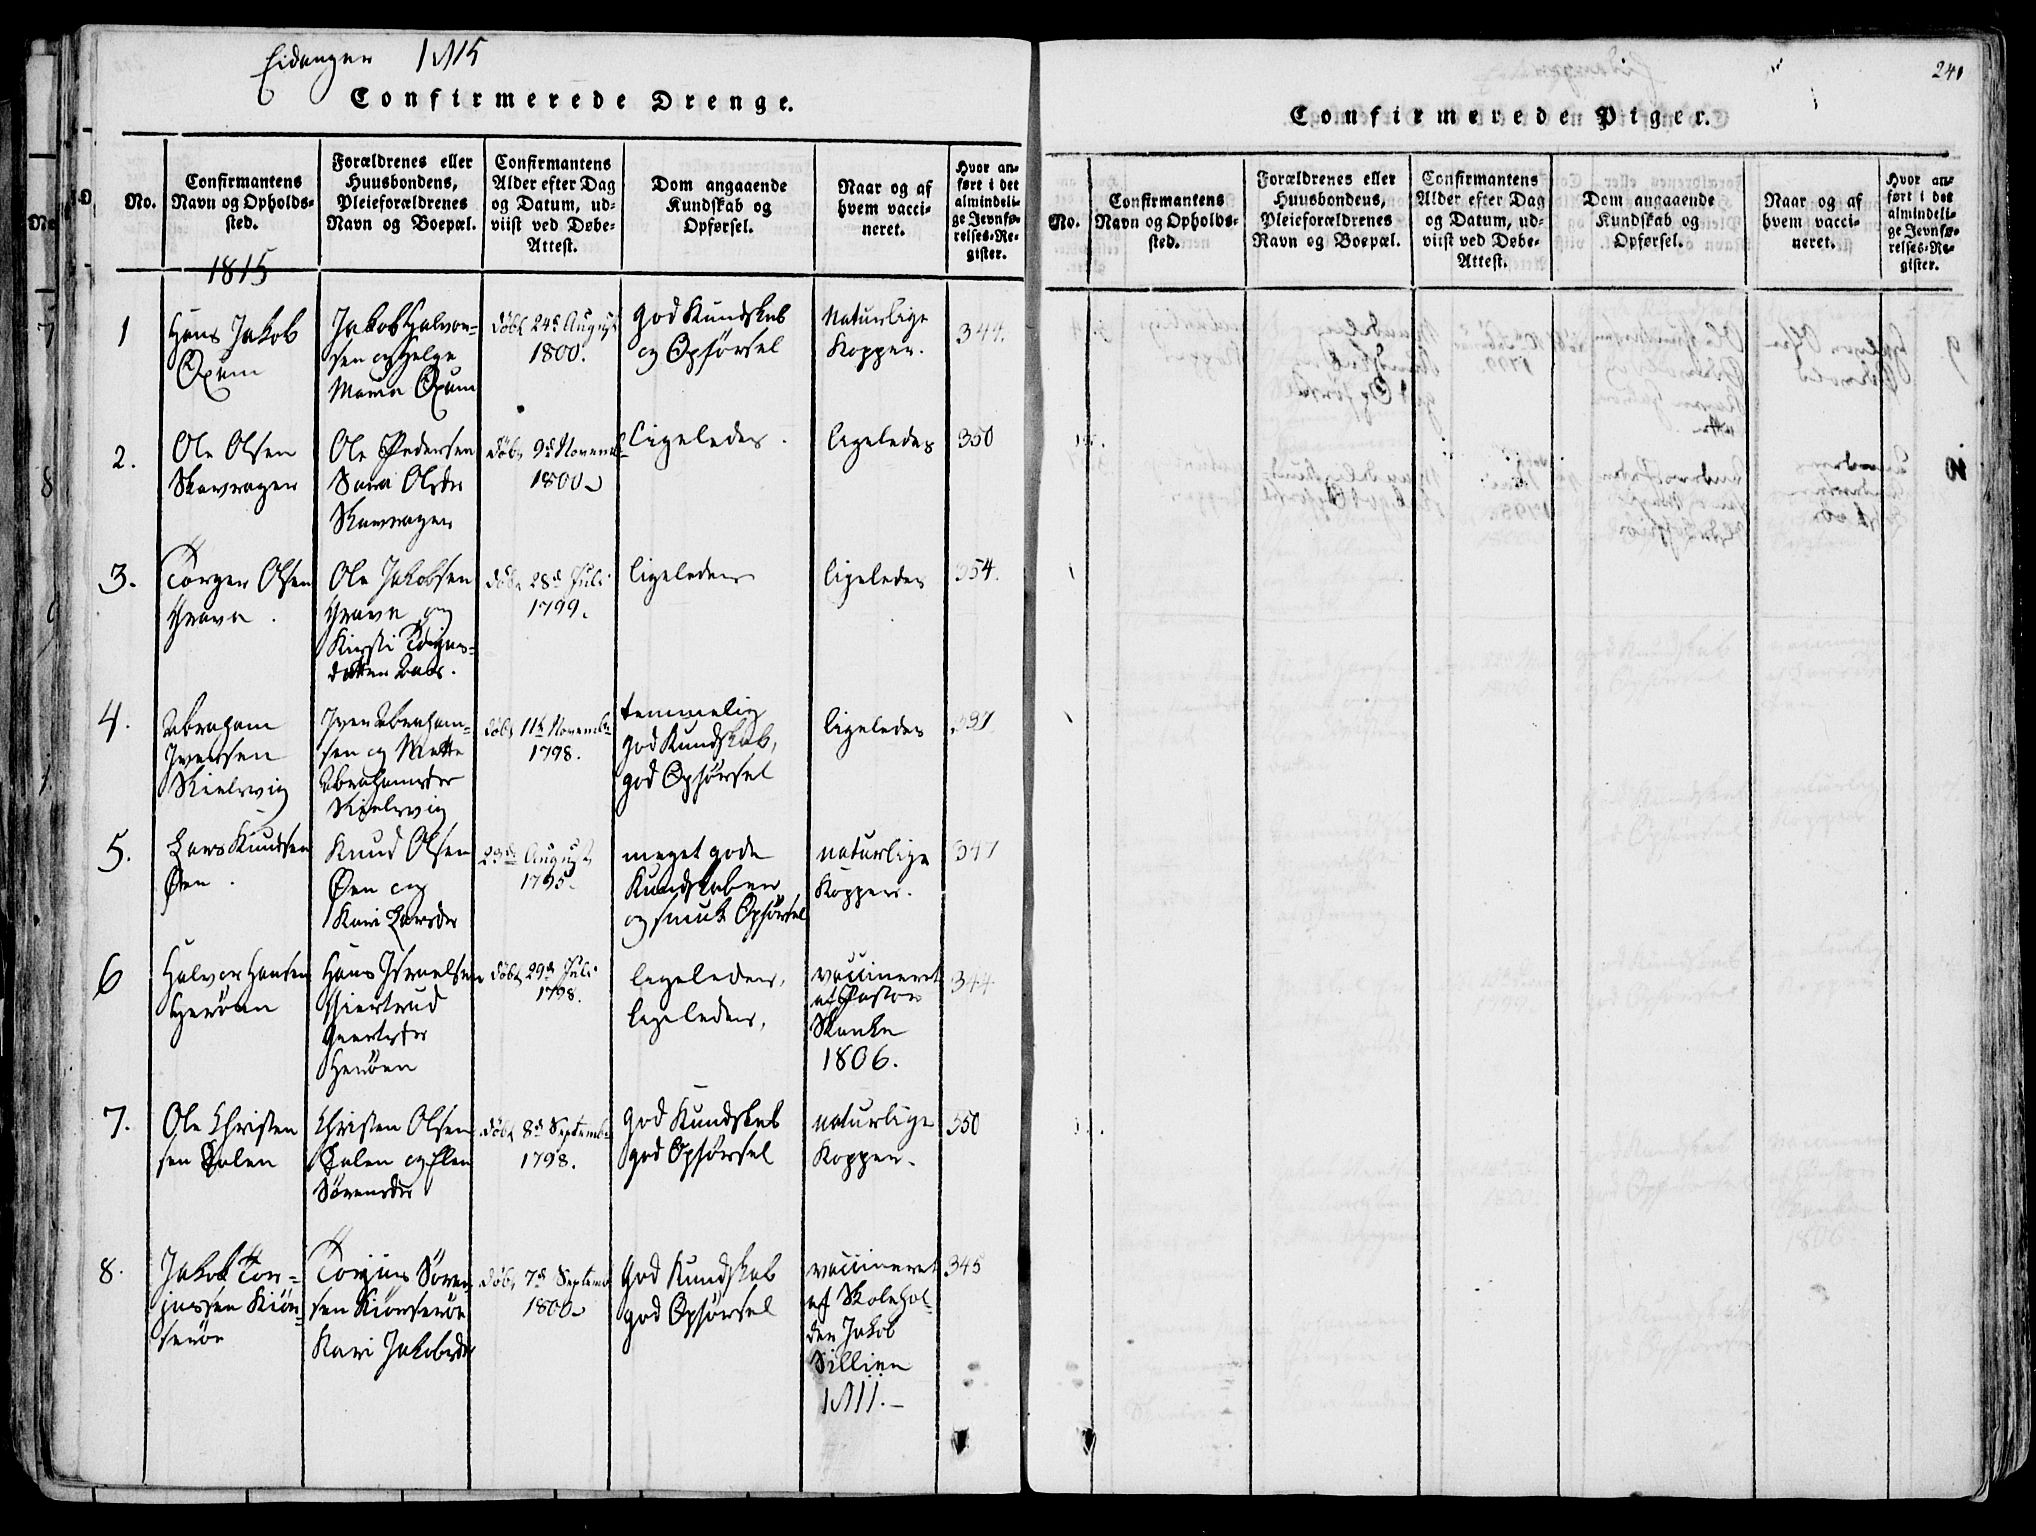 Eidanger 1815
Confirmerede Drenge.
No.
Confirmantens
Navn og Opholds-
sted.
Forældrenes eller
Huusbondens,
Pleieforældrenes
Navn og Boepæl.
Confirmantens
Alder efter Dag
og Datum, ud-
viist ved Døbe-
Attest.
Dom angaaende
Kundskab og
Opførsel.
Naar og af
hvem vacci-
neret.
Hvor an-
ført i det
almindeli-
ge Jevnfø-
relses-Re-
gister.
1815
1
Hans Jakob
Oxum
Jakob Halvor-
sen og Helge
Maria Oxum
døbt 24d August
1800.
god Kundskab
og Opførsel
Naturlige
Kopper.
344.
2.
Ole Olsen
Skavragen
Ole Pedersen
Sara Olsdr
Skavragen
døbt 9d Novemb
1800
ligeledes.
ligeledes
350
3.
Torger Olsen
Grava.
Ole Jakobsen
Grava og
Kirsti
datter
døbt 28d Juli
1799.
ligeledes
ligeledes
354.
4.
Abraham
Iversen
Kielsvig
Iver Abraham-
sen og Mette
Abrahamsdr
Kielsvig
døbt 11te Novembr
1798.
temmelig
god Kundskab,
god Opførsel
ligeledes
337
5.
Lars Knudsen
Øen.
Knud Olsen
Øen og
Kari Larsdr
23de August
1795.
meget gode
Kundskaber
og smuk Opførsel
naturlige
Kopper.
347
6
Halvor Hansen
Herøen
Hans Israelsen
Giertrud
Geertsdr
Herøen
døbt 29d Juli
1798.
ligeledes,
ligeledes,
vaccineret
af Pastor
Skanke
1806.
344
7.
Ole Christen
sen Dalen
Christen Olsen
Dalen og Elen
Sørensdr
døbt 8d Septemb
1798.
god Kundskab
god Opførsel
naturlige
Kopper.
350
8.
Jakob Tor-
jussen Kiøn-
serøe
Torjus Søren
sen Kiønserøe
Kari Jakobsdr
døbt 7d Septemb
1800
god Kundskab
god Opførsel
vaccineret
af Skolehol-
der Jakob
Sillien
1811.-
345
241
Confirmerede Piger.
No.
Confirmantens
Navn og Opholds-
sted.
Forældrenes eller
Huusbondens,
Pleieforældrenes
Navn og Boepæl.
Confirmantens
Alder efter Dag
og Datum, ud-
viist ved Døbe-
Attest.
Dom angaaende
Kundskab og
Opførsel.
Naar og af
hvem vacci-
neret.
Hvor an-
ført i det
almindeli-
ge Jevnfø-
relses-Re-
gister.